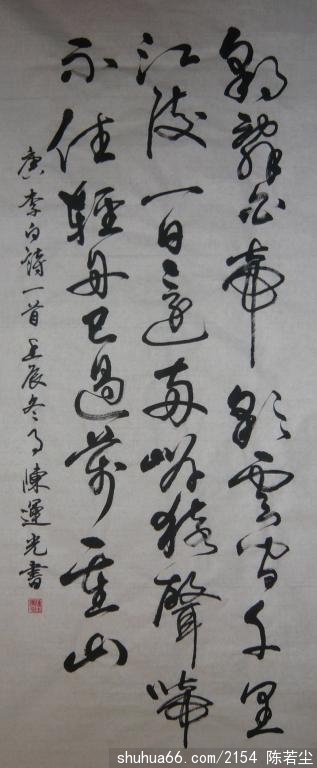 朝辭白帝彩雲間千里
江陵一日還兩岸猿聲啼
不住輕舟已過萬重山
唐李白詩一首壬辰冬月陳運光書
shuhua66.com/2154 陈若尘